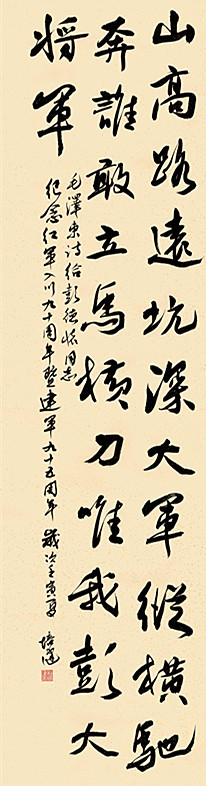 山高路遠坑深大軍縱橫馳
奔誰敢立馬橫刀唯我彭大
將軍
毛澤東詩給彭德懷同志
纪念红軍入川九十周年暨建軍九十五周年 歲次壬寅夏 培